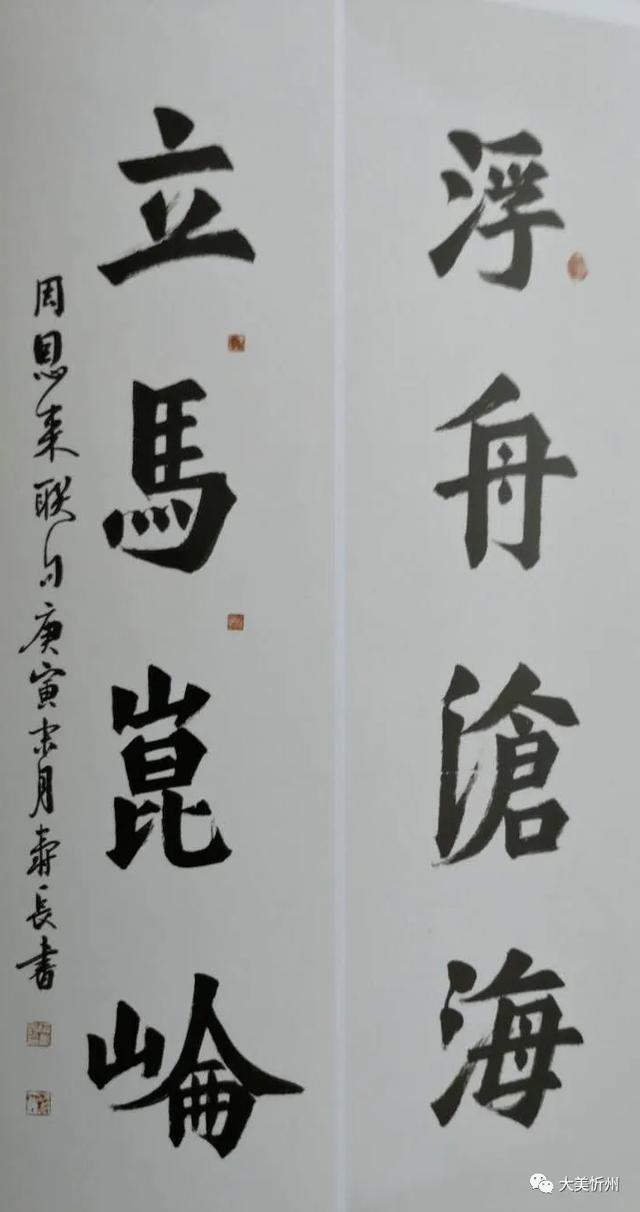 浮舟滄海
立馬崑崙
周恩来联句庚寅末月壽長書
大美忻州